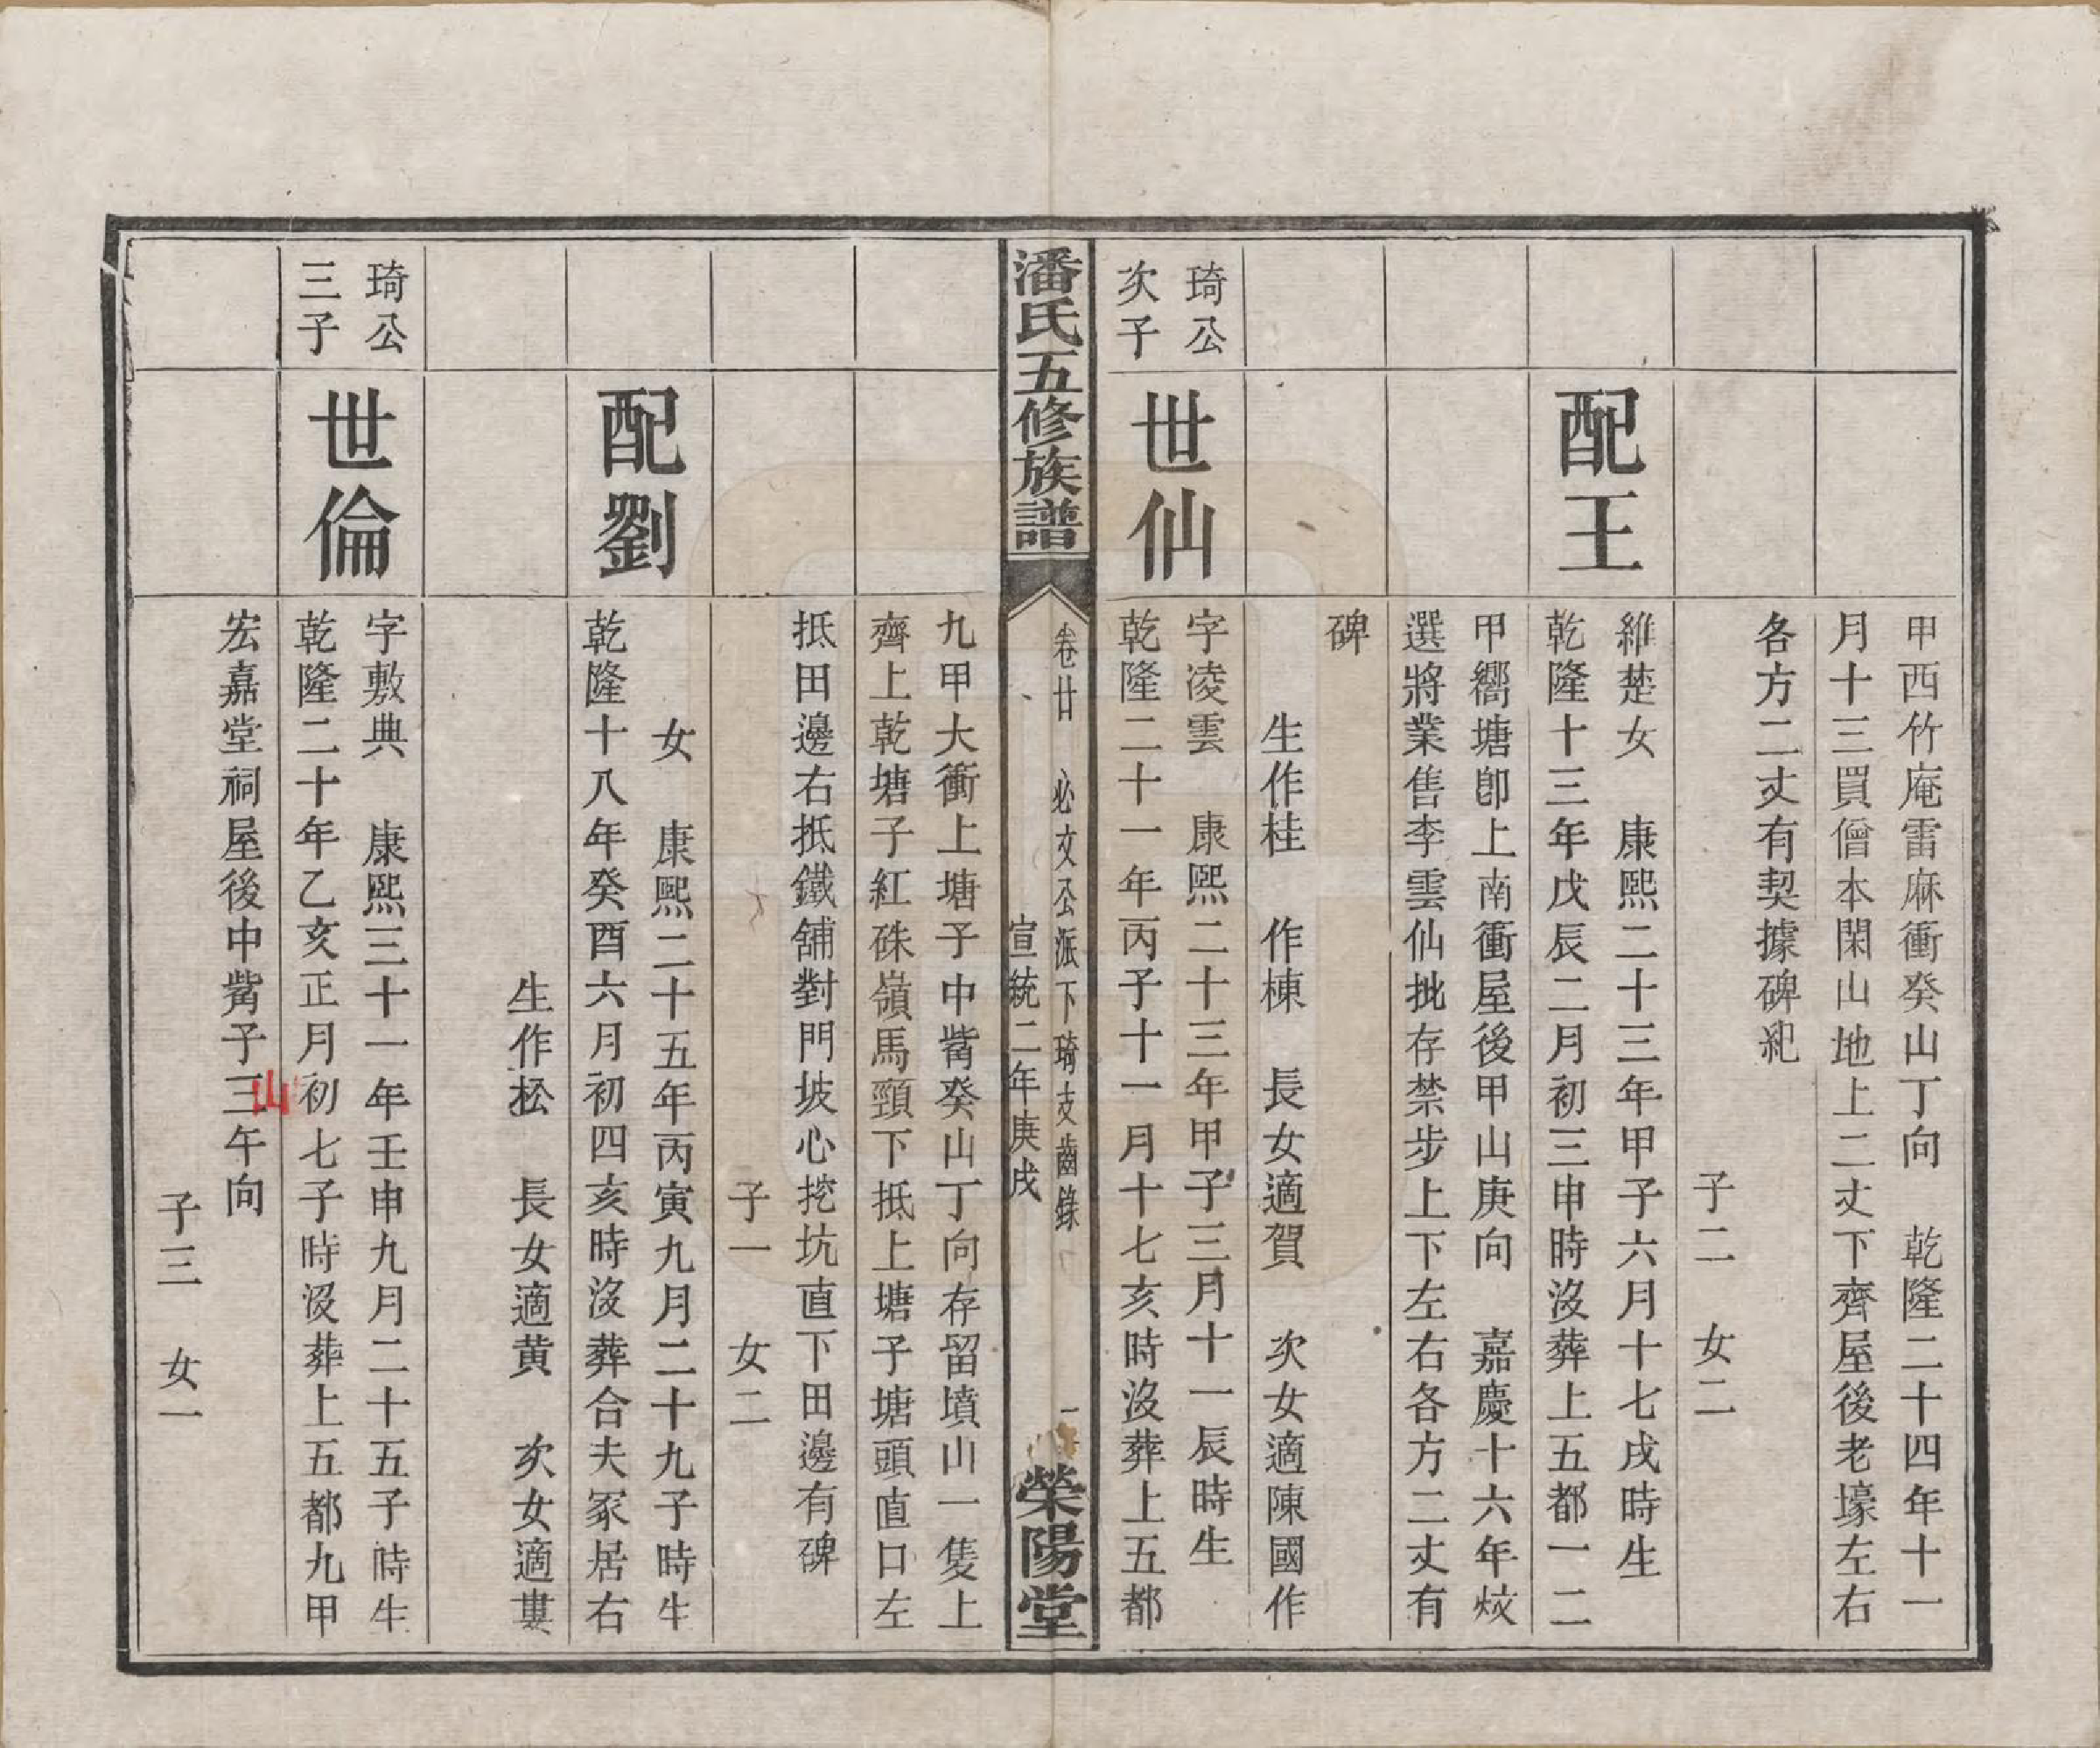 甲西竹庵雷麻衝癸山丁向　乾隆二十四年十一
月十三買僧本閑山地上二丈下齊屋後老壕左右
各方二丈有契據碑紀
子二　女二
配王
維楚女　康熙二十三年甲子六月十七戌時生
乾隆十三年戊辰二月初三申時沒葬上五都一二
甲嚮塘卽上南衝屋後甲山庚向　嘉慶十六年
選將業售李雲仙批存禁步上下左右各方二丈有
碑
生作桂　作棟　長女適賀　次女適陳國作
琦公
次子
世仙
字凌雲　康熙二十三年甲子三月十一辰時生
乾隆二十一年丙子十一月十七亥時沒葬上五都
潘氏五修族譜
卷廿　必文公派下琦支齒錄
宣統二年庚戌
一
榮陽堂
九甲大衝上塘子中嘴癸山丁向存留墳山一隻上
齊上乾塘子紅硃嶺馬頸下抵上塘子塘頭直口左
抵田邊右抵鐵舖對門坡心挖坑直下田邊有碑
子一　女二
配劉
女　康熙二十五年丙寅九月二十九子時生
乾隆十八年癸酉六月初四亥時沒葬合夫冢居右
生作松　長女適黃　次女適婁
琦公
三子
世倫
字敷典　康熙三十一年壬申九月二十五子時生
乾隆二十年乙亥正月初七子時沒葬上五都九甲
宏嘉堂祠屋後中嘴子三午向
山
子三　女一